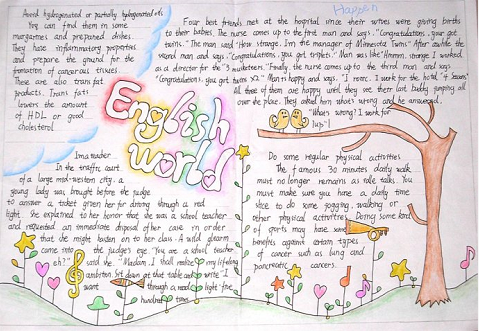 Avoid hydrogenated or partially hydrogenated oils
You can find them in some
margarines and prepared dishes.
They have inflammatory properties
and prepare the ground for the
formation of cancerous tissues.
These are also trans fat
products. Trans fats
lowers the amount
of HDL or good
cholesterol
Happen
Four best friends met at the hospital since their wives were giving births
to their babies. The nurse comes up to the first man and says, "Congratulations, your got
twins." The man said "How strange, I'm the manager of Minnesota Twins." After awhile the
second man and says, "Congratulations, you got triplets." Man was like "Hmmm, strange I worked
as a director for the "3 musketeers." Finally, the nurse comes up to the third man and says
"Congratulations, you got twins x2." Man is happy and says, "I ronic, I work for the hotel "4 Seasons"
All three of them are happy until they see their last buddy jumping all
over the place. They asked him what's wrong and he answered,
"What's wrong? I work for
7up"!
English
world
I'm a teacher
In the traffic court
of a large mid-western city, a
young lady was brought before the judge
to answer a ticket given her for driving through a red
light. She explained to her honor that she was a school teacher
and requested an immediate disposal of her case in order
that she might hasten on to her class. A wild gleam
came into the judge's eye. "You are a school teach
er, eh?" said she. "Madam, I shall realize my lifelong
ambition. Sit down at that table and write "I
went through a red light" five
hundred times
Do some regular physical activities.
The famous 30 minutes daily walk
must no longer remains as role talks. You
must make sure you have a daily time
slice to do some jogging, walking or
other physical activities. Doing some kind
of sports may have some
benefits against certain types
of cancer such as lung and
pancreatic cancers.